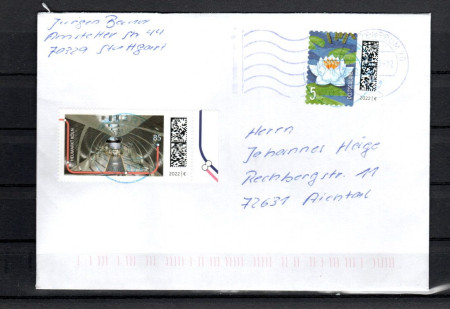 Jürgen Bauer
Amstetter Str. 44
70329 Stuttgart
5
2022 | €
HEUMARKT KÖLN
85
2022 | €
Herrn
Johannes Häge
Rechbergstr. 11
72631 Aichtal